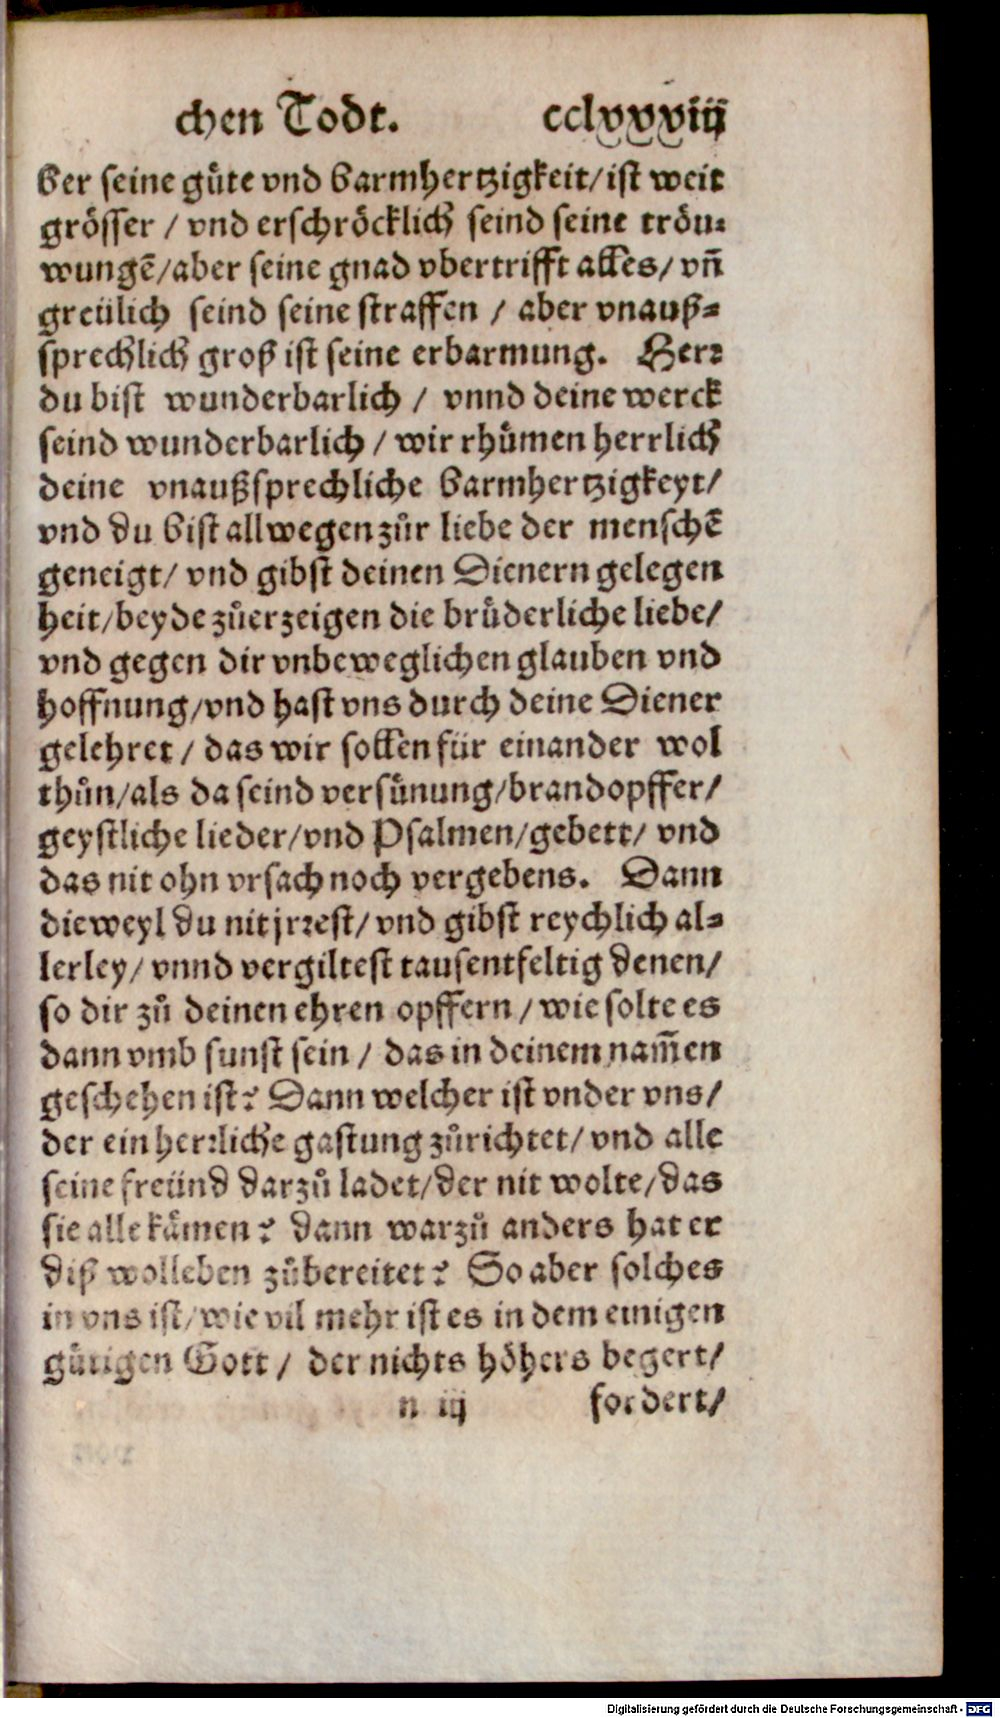 chen Todt. cclxxxviij
ber seine guͤte vnd barmhertzigkeit/ist weit
groͤsser / vnd erschroͤcklich seind seine troͤu⸗
wungẽ/aber seine gnad vbertrifft alles/ vñ
greülich seind seine straffen / aber vnauß⸗
sprechlich groß ist seine erbarmung. Herr
du bist wunderbarlich / vnnd deine werck
seind wunderbarlich / wir rhuͤmen herrlich
deine vnaußsprechliche barmhertzigkeyt/
vnd du bist allwegen zůr liebe der menschẽ
geneigt/ vnd gibst deinen Dienern gelegen
heit/beyde zůerzeigen die bruͤderliche liebe/
vnd gegen dir vnbeweglichen glauben vnd
hoffnung/vnd hast vns durch deine Diener
gelehret / das wir sollen für einander wol
thůn/als da seind versuͤnung/brandopffer/
geystliche lieder/vnd Psalmen/gebett/ vnd
das nit ohn vrsach noch vergebens. Dann
dieweyl du nit jrrest/ vnd gibst reychlich al⸗
lerley/ vnnd vergiltest tausentfeltig denen/
so dir zů deinen ehren opffern / wie solte es
dann vmb sunst sein / das in deinem nam̃en
geschehen ist? Dann welcher ist vnder vns/
der ein herrliche gastung zůrichtet/ vnd alle
seine freünd darzů ladet/der nit wolte/das
sie alle kaͤmen? dann warzů anders hat er
diß wolleben zůbereitet? So aber solches
in vns ist/wie vil mehr ist es in dem einigen
guͤtigen Gott / der nichts hoͤhers begert/
n iij fordert/
Digitalisierung gefördert durch die Deutsche Forschungsgemeinschaft - DFG